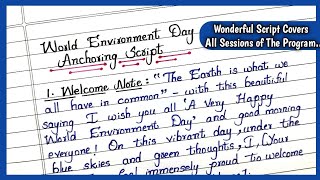 World Environment Day
Anchoring Script
Wonderful Script Covers
All Sessions of The Program..
1. Welcome Note: "The Earth is what we
all have in common" - with this beautiful
saying I wish you all 'A Very Happy
World Environment Day' and good morning
everyone! On this vibrant day, under the
blue skies and green thoughts, I, (Your
feel immensely proud to welcome